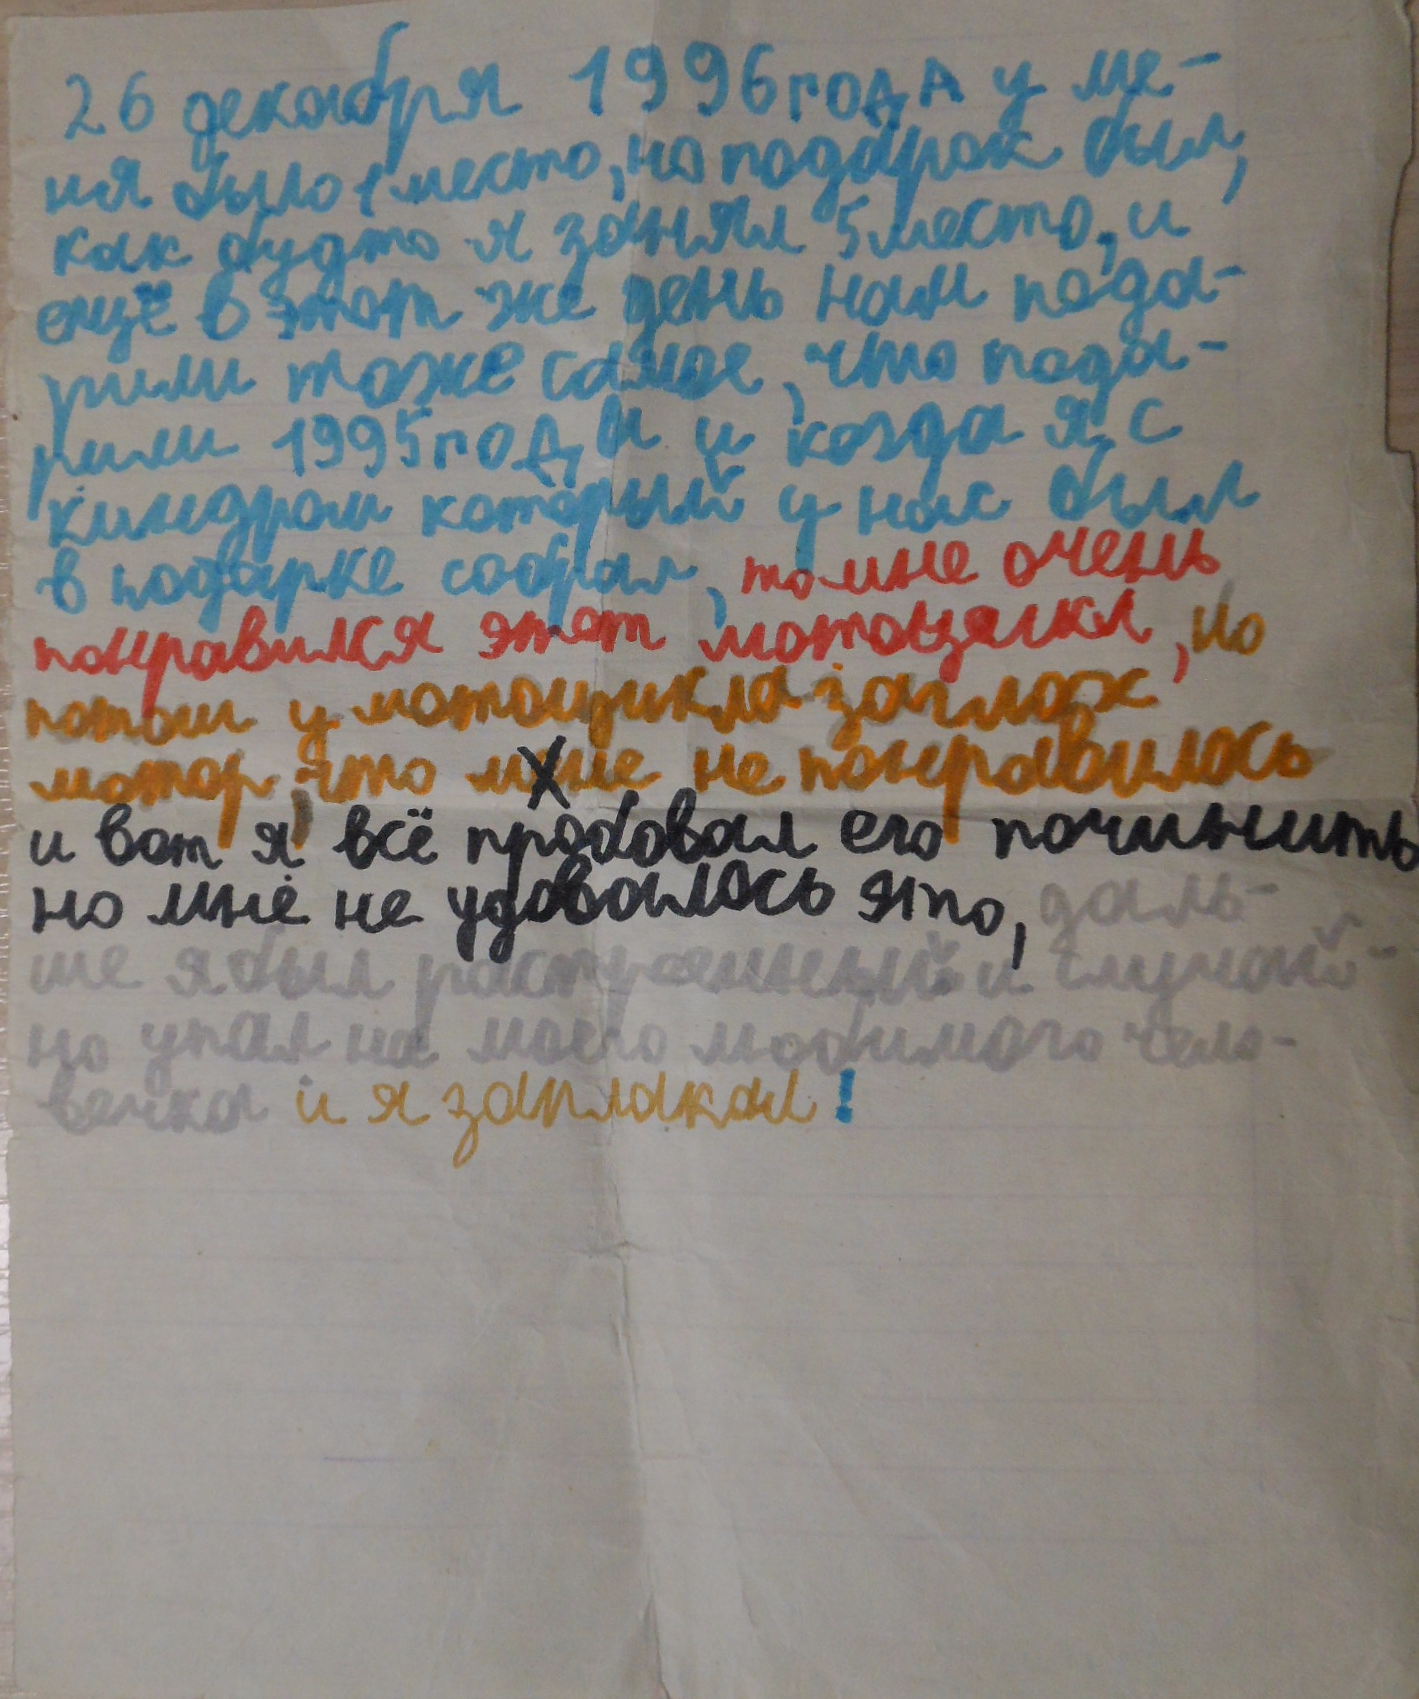 26 декабря 1996 года у ме-
ня было 1 место, но подарок был,
как будто я занял 5 место, и
ещё в этот же день нам пода-
рили тоже самое, что пода-
рили 1995 года и когда я с
киндром который у нас был
в подарке собрал, то мне очень
понравился этот мотоцыкл, но
потом у мотоцикла заглох
мотор, что мне не понравилось
и вот я всё пробовал его починить
но мне не удовалось это, даль-
ше я был растроенный и случай-
но упал на моего любимого чело-
вечка и я заплакал!